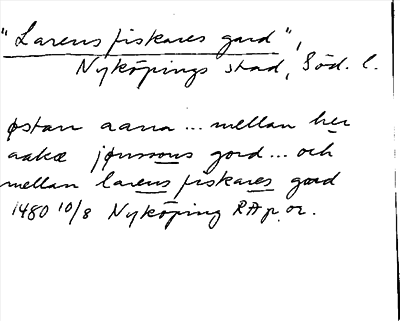 "Larens fiskares gard",
Nyköpings stad, Söd. l.
østan aana ... mellan her
aakæ jønssons gord ... och
mellan larens fiskares gard
1480 10/8 Nyköping RAp. or.